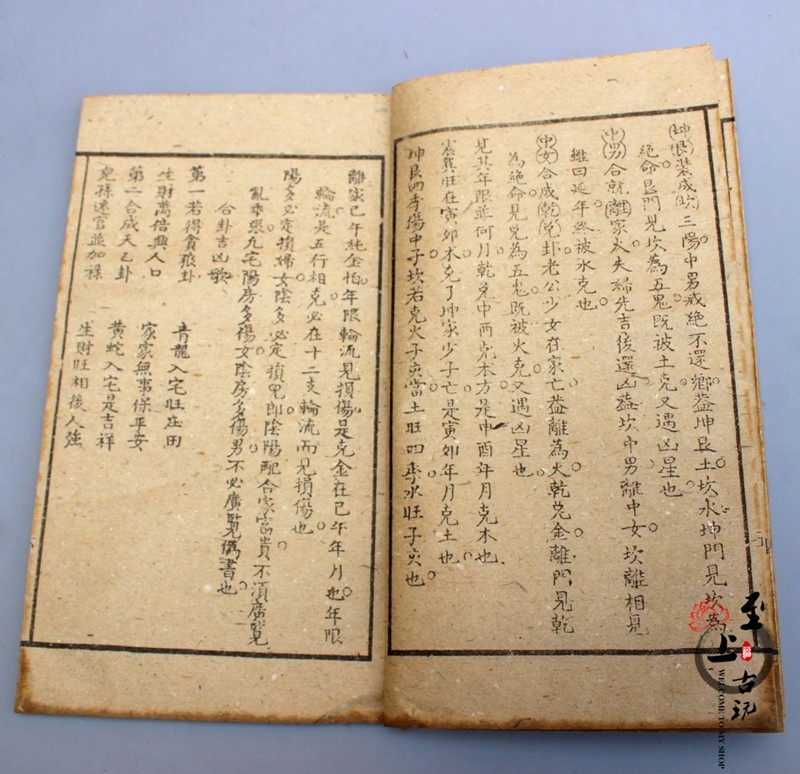 坤艮裝成坎三陽中男咸絕不還鄉蓋坤艮土坎水坤門見坎為
絕命艮門見坎為五鬼既被土克又遇凶星也
中男合就離家火夫婦先吉後還凶蓋坎中男離中女坎離相見
雖曰延年終被水克也
中女合成乾兌卦老公少女在家亡蓋離為火乾兌金離門見乾
為絕命見兌為五鬼既被火克又遇凶星也
見其年限並何月乾兌申酉克木方是申酉年月克木也
震巽旺在寅卯木克了坤家少子亡是寅卯年月克土也
坤艮四季傷中子坎若克火子亥當土旺四季水旺子亥也
離家巳午純金怕年限輪流見損傷是克金在巳午年月也年限
輪流是五行相克必在十二支輪流而見損傷也
陽多必定損婦女陰多必定損男即陰陽配合家富貴不須廣覽
亂乖張九宅陽房多傷女陰房多傷男不必廣覽偽書也
合卦吉凶歌
第一若得貪狼卦 青龍入宅旺庄田
生財萬倍興人口 家家無事保平安
第二合成天乙卦 黃蛇入宅是吉祥
兒孫送官並加祿 生財旺相後人強
至上古玩
WELCOME TO MY SHOP